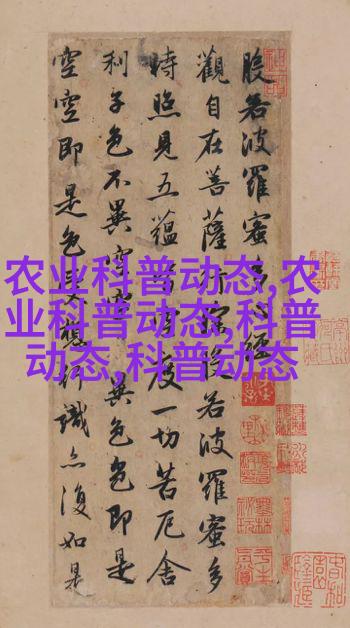 般若波羅蜜多心經
觀自在菩薩行深般若波羅蜜多
時照見五蘊皆空度一切苦厄舍
利子色不異空空異色色即是
空空即是色受想行識亦復如是
农业科普动态,农
业科普动态,科普
动态,科普动态